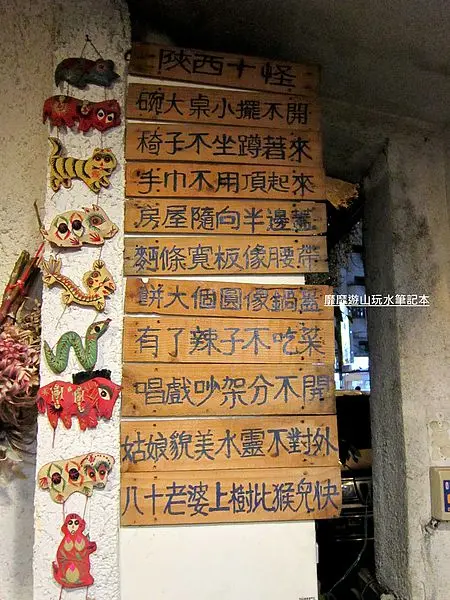 陝西十怪
碗大桌小擺不開
椅子不坐蹲著來
手巾不用頂起來
房屋隨向半邊蓋
麵條寬板像腰帶
餅大個圓像鍋蓋
靡靡遊山玩水筆記本
有了辣子不吃菜
唱戲吵架分不開
姑娘貌美水靈不對外
八十老婆上樹比猴兒快